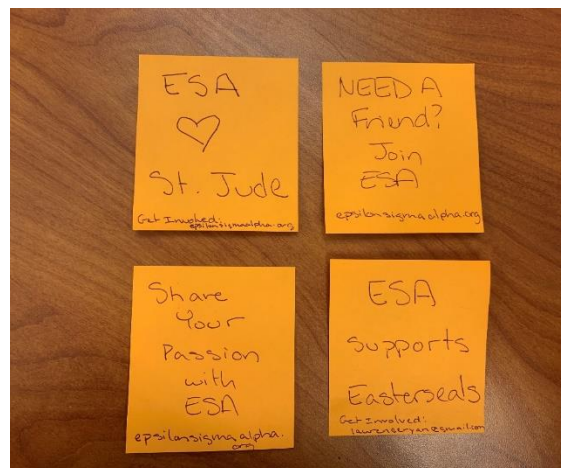 ESA
♡
St. Jude
Get Involved:
epsilonsigmaalpha.org
NEED A
Friend?
Join
ESA
epsilonsigmaalpha.org
Share
Your
Passion
with
ESA
epsilonsigmaalpha.
org
ESA
supports
Easterseals
Get Involved: